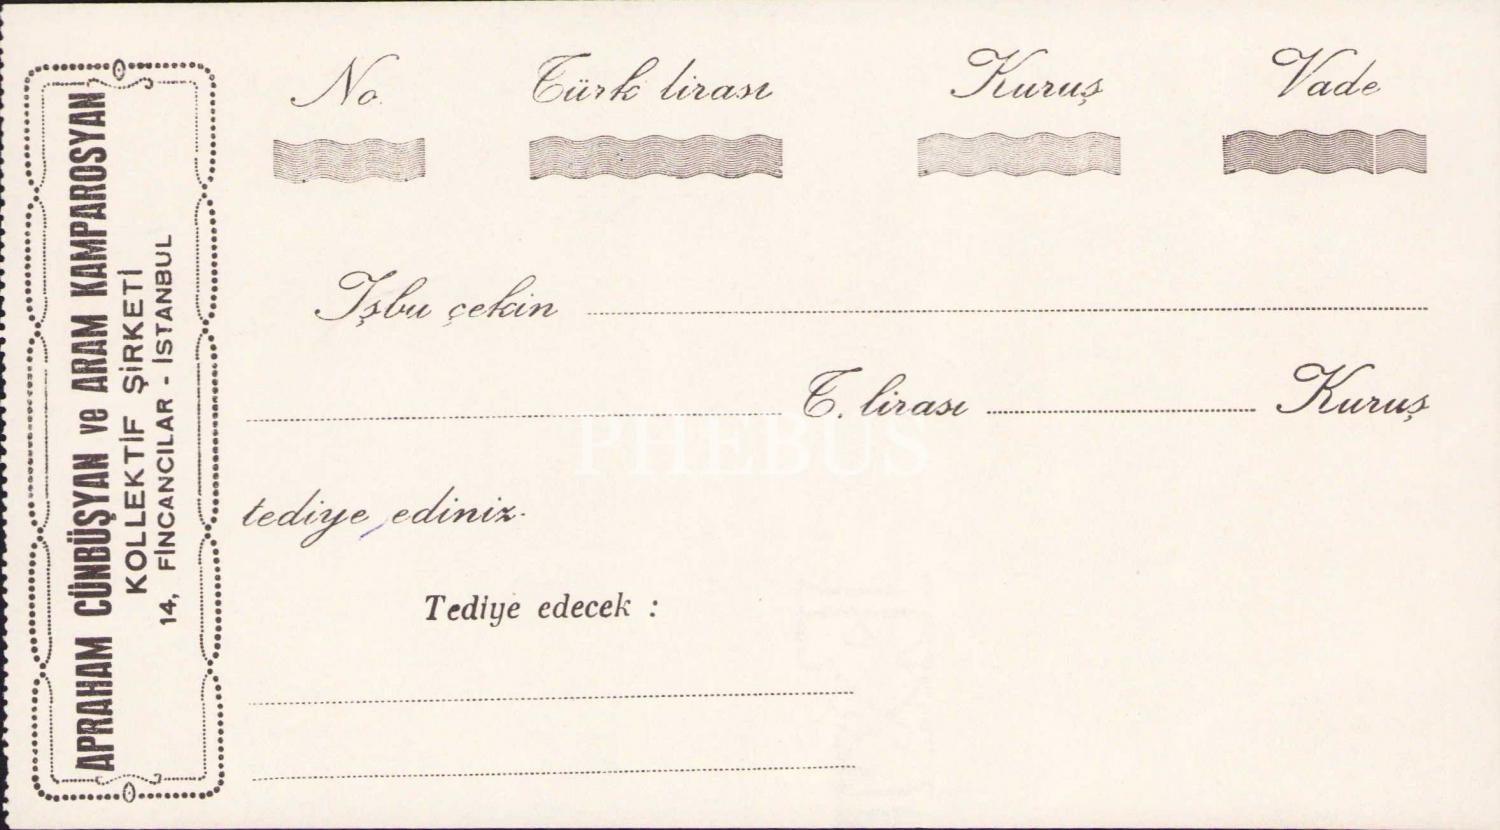 APRAHAM CÜNBÜŞYAN ve ARAM KAMPAROSYAN
KOLLEKTİF ŞİRKETİ
14, FİNCANCILAR - İSTANBUL
No. Türk lirası Kuruş Vade
İşbu çekin
T. lirası Kuruş
tediye ediniz.
Tediye edecek :
PHEBUS